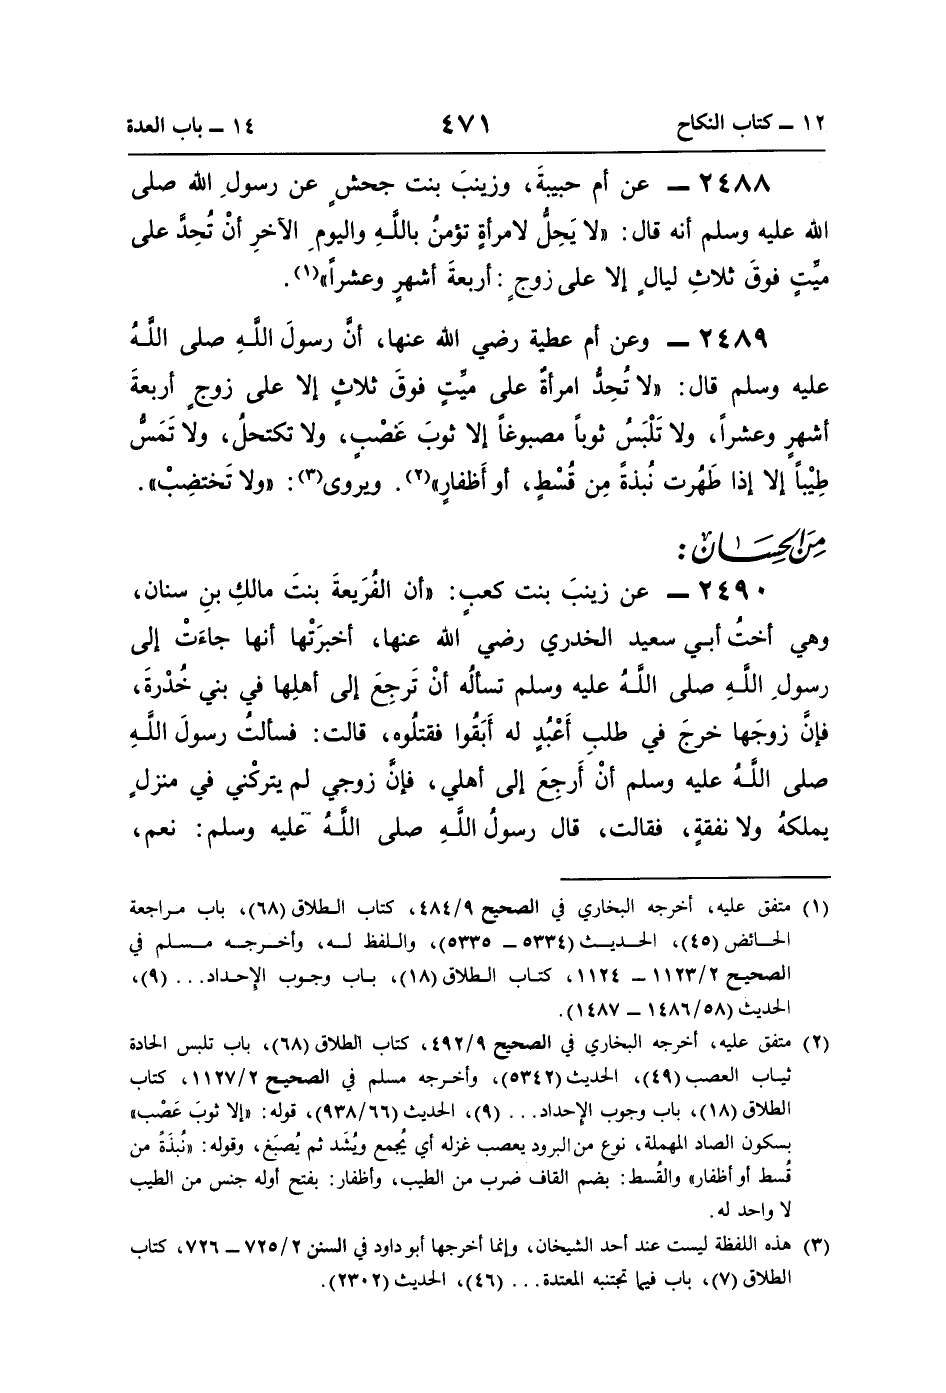 ١٢ ـ كتاب النكاح ٤٧١ ١٤ ـ باب العدة
٢٤٨٨ ـ عن أم حبيبةَ، وزينبَ بنت جحشٍ عن رسولِ الله صلى
الله عليه وسلم أنه قال: «لا يَحلُّ لامرأةٍ تؤمنُ باللَّهِ واليومِ الآخرِ أنْ تُحِدَّ على
ميِّتٍ فوقَ ثلاثِ ليالٍ إلا على زوجٍ: أربعةَ أشهرٍ وعشراً»(١).
٢٤٨٩ ـ وعن أم عطية رضي الله عنها، أنَّ رسولَ اللَّهِ صلى اللَّهُ
عليه وسلم قال: «لا تُحِدُّ امرأةٌ على ميِّتٍ فوقَ ثلاثٍ إلا على زوجٍ أربعةَ
أشهرٍ وعشراً، ولا تَلْبَسُ ثوباً مصبوغاً إلا ثوبَ عَصْبٍ، ولا تكتحلُ، ولا تَمَسُّ
طِيْباً إلا إذا طَهُرت نُبذةً مِن قُسْطٍ، أو أَظفارٍ»(٢). ويروى(٣): «ولا تَختضِبْ».
مِنَ الحِسَان:
٢٤٩٠ ـ عن زينبَ بنت كعبٍ: «أن الفُرَيعةَ بنتَ مالكِ بنِ سنان،
وهي أختُ أبي سعيد الخدري رضي الله عنها، أخبرَتْها أنها جاءَتْ إلى
رسولِ اللَّهِ صلى اللَّهُ عليه وسلم تسألُه أنْ تَرجِعَ إلى أهلِها في بني خُدْرةَ،
فإنَّ زوجَها خرجَ في طلبِ أَعْبُدٍ له أَبَقُوا فقتلُوه، قالت: فسألتُ رسولَ اللَّهِ
صلى اللَّهُ عليه وسلم أنْ أَرجِعَ إلى أهلي، فإنَّ زوجي لم يتركْني في منزلٍ
يملكهُ ولا نفقةٍ، فقالت، قال رسولُ اللَّهِ صلى اللَّهُ عليه وسلم: نعم،
(١) متفق عليه، أخرجه البخاري في الصحيح ٤٨٤/٩، كتاب الطلاق (٦٨)، باب مراجعة
الحائض (٤٥)، الحديث (٥٣٣٤ ـ ٥٣٣٥)، واللفظ له، وأخرجه مسلم في
الصحيح ١١٢٣/٢ ـ ١١٢٤، كتاب الطلاق (١٨)، باب وجوب الإحداد... (٩)،
الحديث (١٤٨٦/٥٨ ـ ١٤٨٧).
(٢) متفق عليه، أخرجه البخاري في الصحيح ٤٩٢/٩، كتاب الطلاق (٦٨)، باب تلبس الحادة
ثياب العصب (٤٩)، الحديث (٥٣٤٢)، وأخرجه مسلم في الصحيح ١١٢٧/٢، كتاب
الطلاق (١٨)، باب وجوب الإحداد... (٩)، الحديث (٩٣٨/٦٦)، قوله: «إلا ثوبَ عَصْب»
بسكون الصاد المهملة، نوع من البرود يعصب غزله أي يُجمع ويُشد ثم يُصبَغ، وقوله: «نُبذَةً من
قُسط أو أظفار» والقُسط: بضم القاف ضرب من الطيب، وأظفار: بفتح أوله جنس من الطيب
لا واحد له.
(٣) هذه اللفظة ليست عند أحد الشيخان، وإنما أخرجها أبو داود في السنن ٧٢٥/٢ ـ ٧٢٦، كتاب
الطلاق (٧)، باب فيما تجتنبه المعتدة... (٤٦)، الحديث (٢٣٠٢).